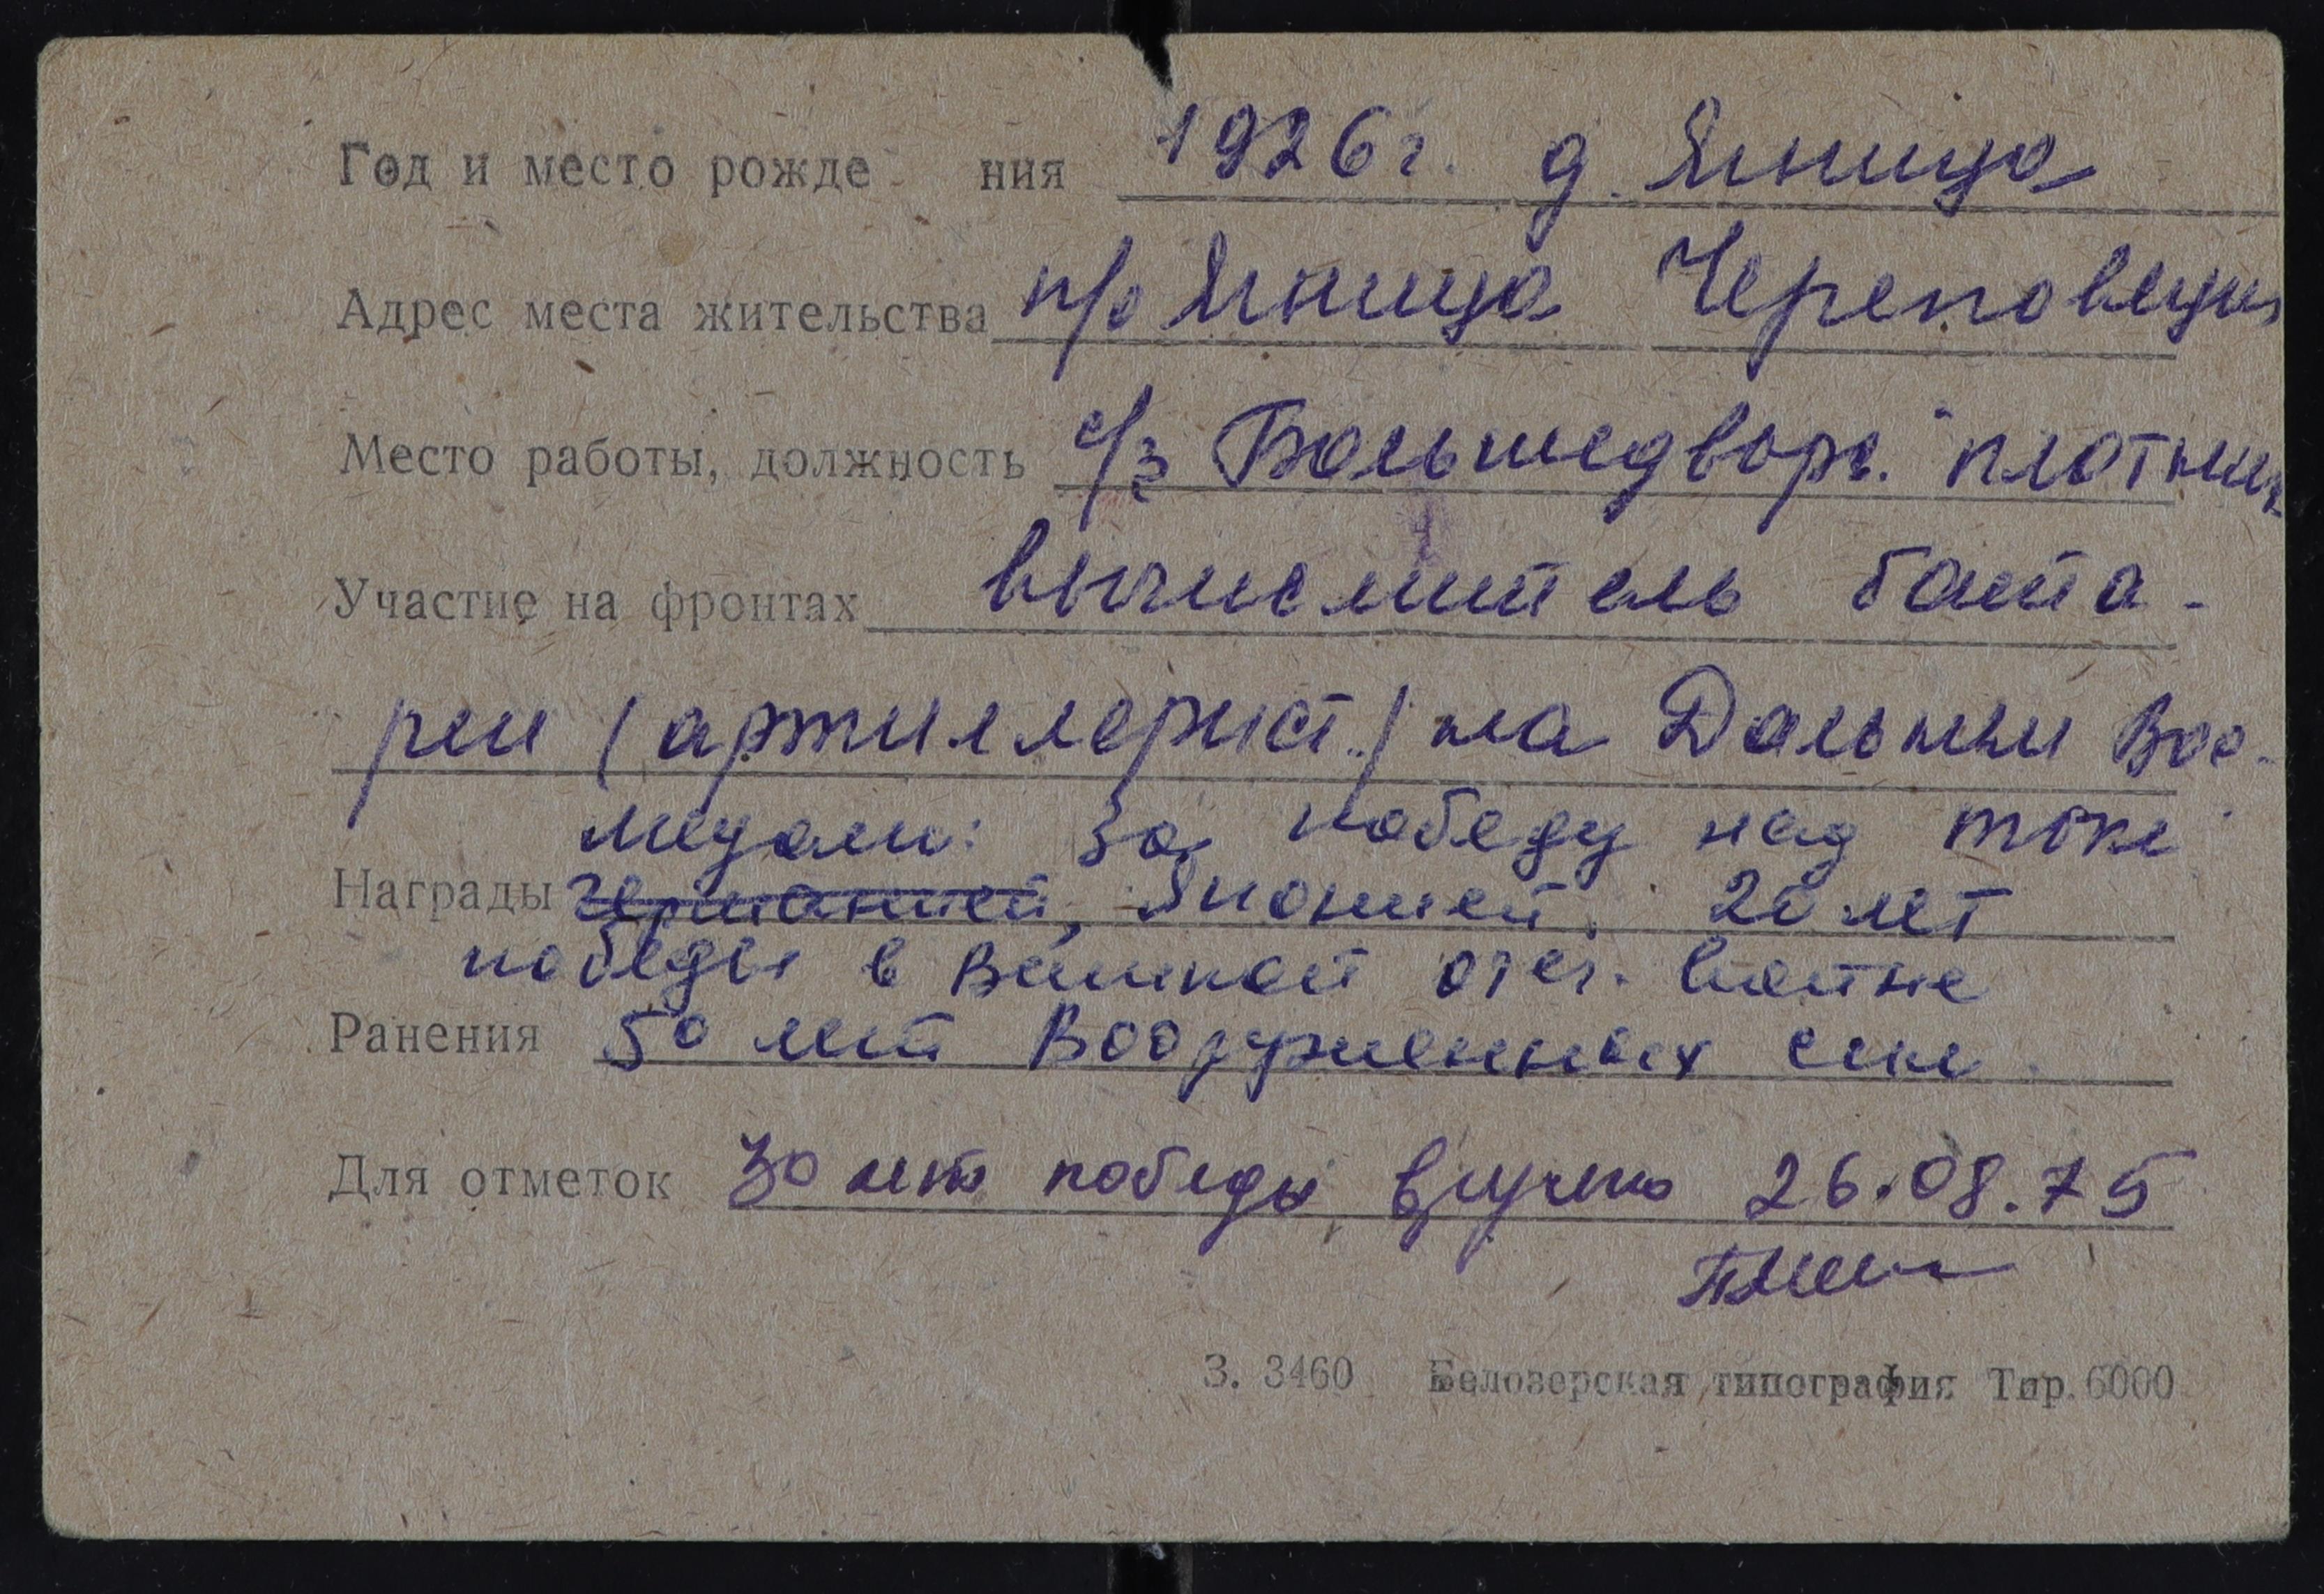 Год и место рожде ния 1926 г. д. Ягница
Адрес места жительства п/о Ягница Череповецк
Место работы, должность с/з Большедворс. плотник
Участие на фронтах вычислитель бата-
реи (артиллерист.) на Дальнем Вос.
медали: За победу над
Награды Германией, Японией, 20 лет
победы в Великой отеч. войне
Ранения 50 лет Вооруженных сил
Для отметок 30 лет победы вручена 26.08.75
З. 3460 Белозерская типография Тир. 6000